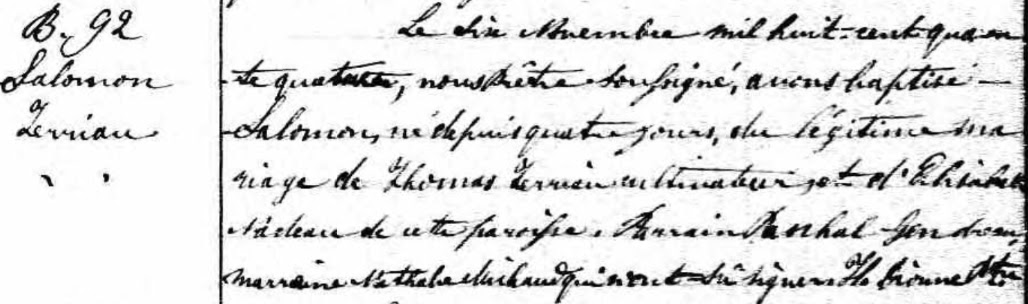 B. 92
Salomon
Terriau
" "
Le Six Novembre mil huit-cent quaran
te quatorze, nous Prêtre Soussigné, avons baptisé
Salomon, né depuis quatre jours, du légitime ma
riage de Thomas Terriau cultivateur, et d'Elisabeth
Nadeau de cette paroisse. Parrain Paschal Gendreau,
marraine Nathalie Michaud qui n'ont Sû signer. H. Ptre